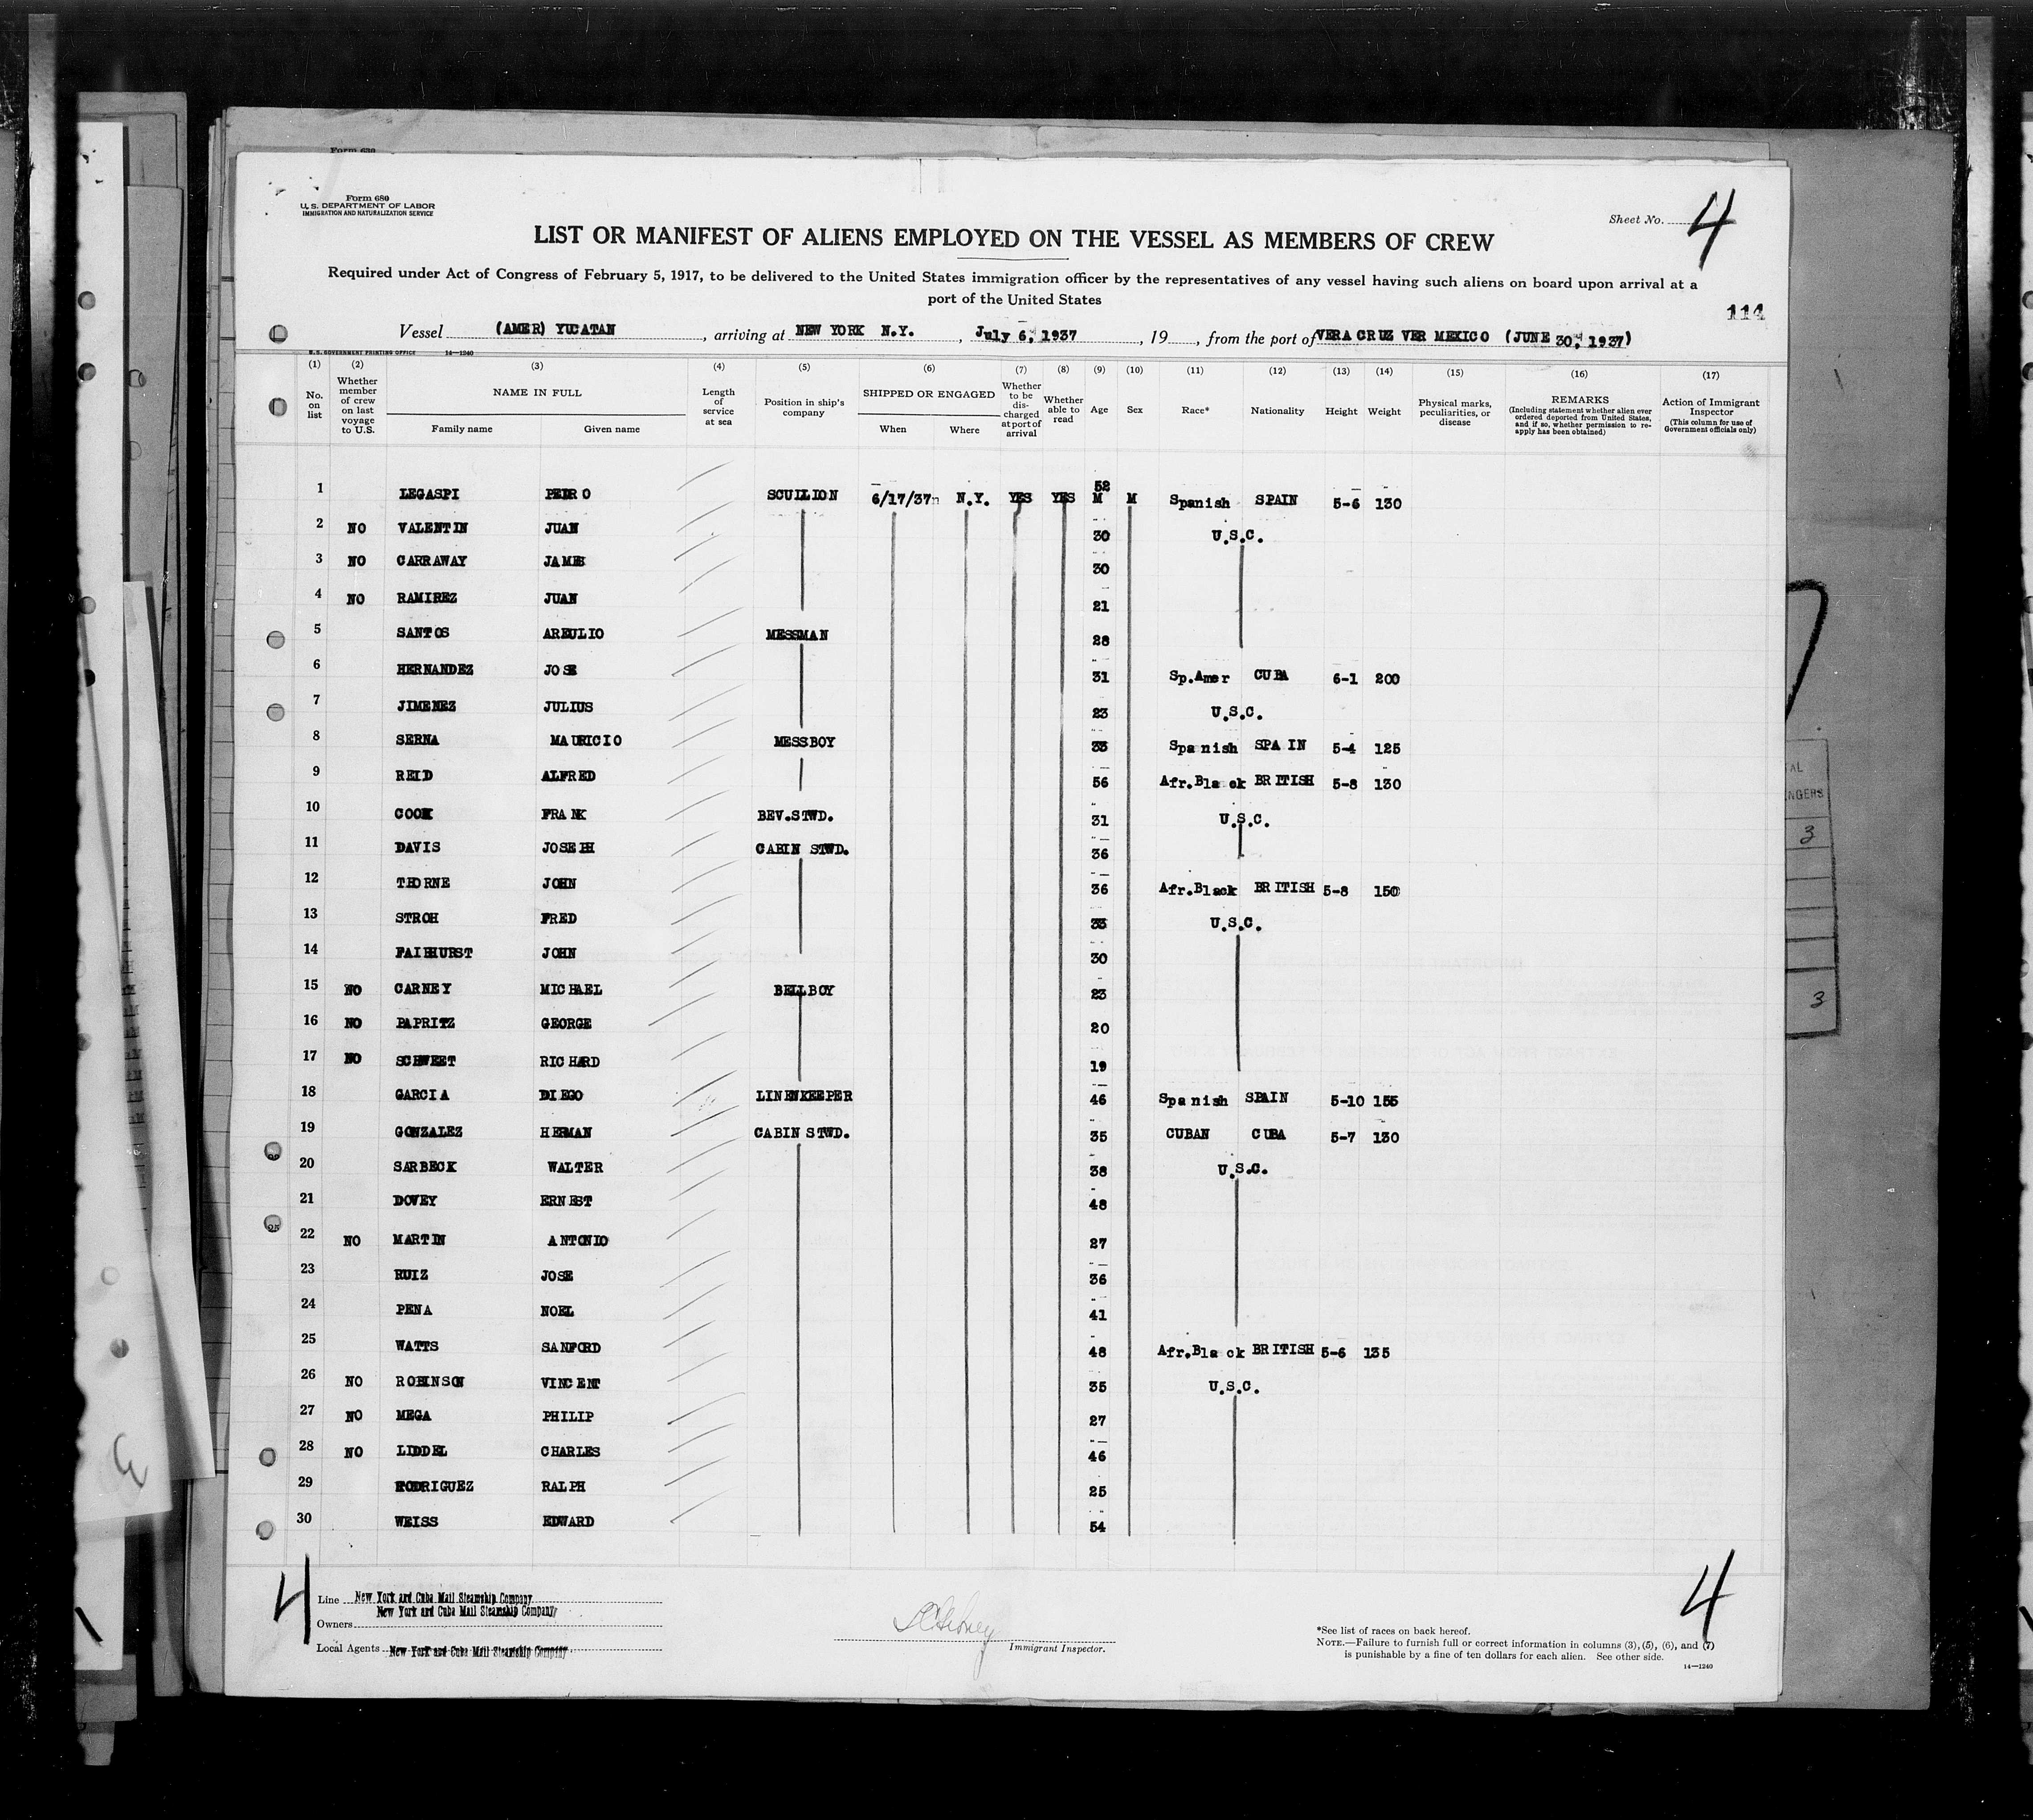 Form 630
Form 680
U. S. DEPARTMENT OF LABOR
IMMIGRATION AND NATURALIZATION SERVICE
Sheet No. 4
LIST OR MANIFEST OF ALIENS EMPLOYED ON THE VESSEL AS MEMBERS OF CREW
Required under Act of Congress of February 5, 1917, to be delivered to the United States immigration officer by the representatives of any vessel having such aliens on board upon arrival at a
port of the United States
114
Vessel (AMER) YUCATAN, arriving at NEW YORK N.Y., July 6, 1937, 19, from the port of VERA CRUZ VER MEXICO (JUNE 30, 1937)
U.S. GOVERNMENT PRINTING OFFICE 14—1240
(1) (2) (3) (4) (5) (6) (7) (8) (9) (10) (11) (12) (13) (14) (15) (16) (17)
No. on list
Whether member of crew on last voyage to U.S.
NAME IN FULL
Family name Given name
Length of service at sea
Position in ship's company
SHIPPED OR ENGAGED
When Where
Whether to be discharged at port of arrival
Whether able to read
Age
Sex
Race*
Nationality
Height
Weight
Physical marks, peculiarities, or disease
REMARKS
(Including statement whether alien ever ordered deported from United States, and if so, whether permission to re-apply has been obtained)
Action of Immigrant Inspector
(This column for use of Government officials only)
1 LEGASPI PEDRO SCULLION 6/17/37 N.Y. YES YES 52 M M Spanish SPAIN 5-6 130
2 NO VALENTIN JUAN 30 U.S.C.
3 NO CARRAWAY JAMES 30
4 NO RAMIREZ JUAN 21
5 SANTOS AREULIO MESSMAN 28
6 HERNANDEZ JOSE 31 Sp.Amer CUBA 6-1 200
7 JIMENEZ JULIUS 23 U.S.C.
8 SERNA MAURICIO MESSBOY 33 Spanish SPAIN 5-4 125
9 REID ALFRED 56 Afr.Black BRITISH 5-8 130
10 COOK FRANK BEV.STWD. 31 U.S.C.
11 DAVIS JOSEPH CABIN STWD. 36
12 THORNE JOHN 36 Afr.Black BRITISH 5-8 150
13 STROH FRED 33 U.S.C.
14 FAIRHURST JOHN 30
15 NO CARNEY MICHAEL BELLBOY 23
16 NO PAPRITZ GEORGE 20
17 NO SCHWEET RICHARD 19
18 GARCIA DIEGO LINENKEEPER 46 Spanish SPAIN 5-10 155
19 GONZALEZ HERMAN CABIN STWD. 35 CUBAN CUBA 5-7 130
20 SARBECK WALTER 38 U.S.C.
21 DOVEY ERNEST 48
22 NO MARTIN ANTONIO 27
23 RUIZ JOSE 36
24 PENA NOEL 41
25 WATTS SANFORD 48 Afr.Black BRITISH 5-6 135
26 NO ROBINSON VINCENT 35 U.S.C.
27 NO MEGA PHILIP 27
28 NO LIDDEL CHARLES 46
29 RODRIGUEZ RALPH 25
30 WEISS EDWARD 54
4
4
Line New York and Cuba Mail Steamship Company
Owners New York and Cuba Mail Steamship Company
Local Agents New York and Cuba Mail Steamship Company
Immigrant Inspector.
*See list of races on back hereof.
NOTE.—Failure to furnish full or correct information in columns (3), (5), (6), and (7)
is punishable by a fine of ten dollars for each alien. See other side.
14—1240
3
3
3